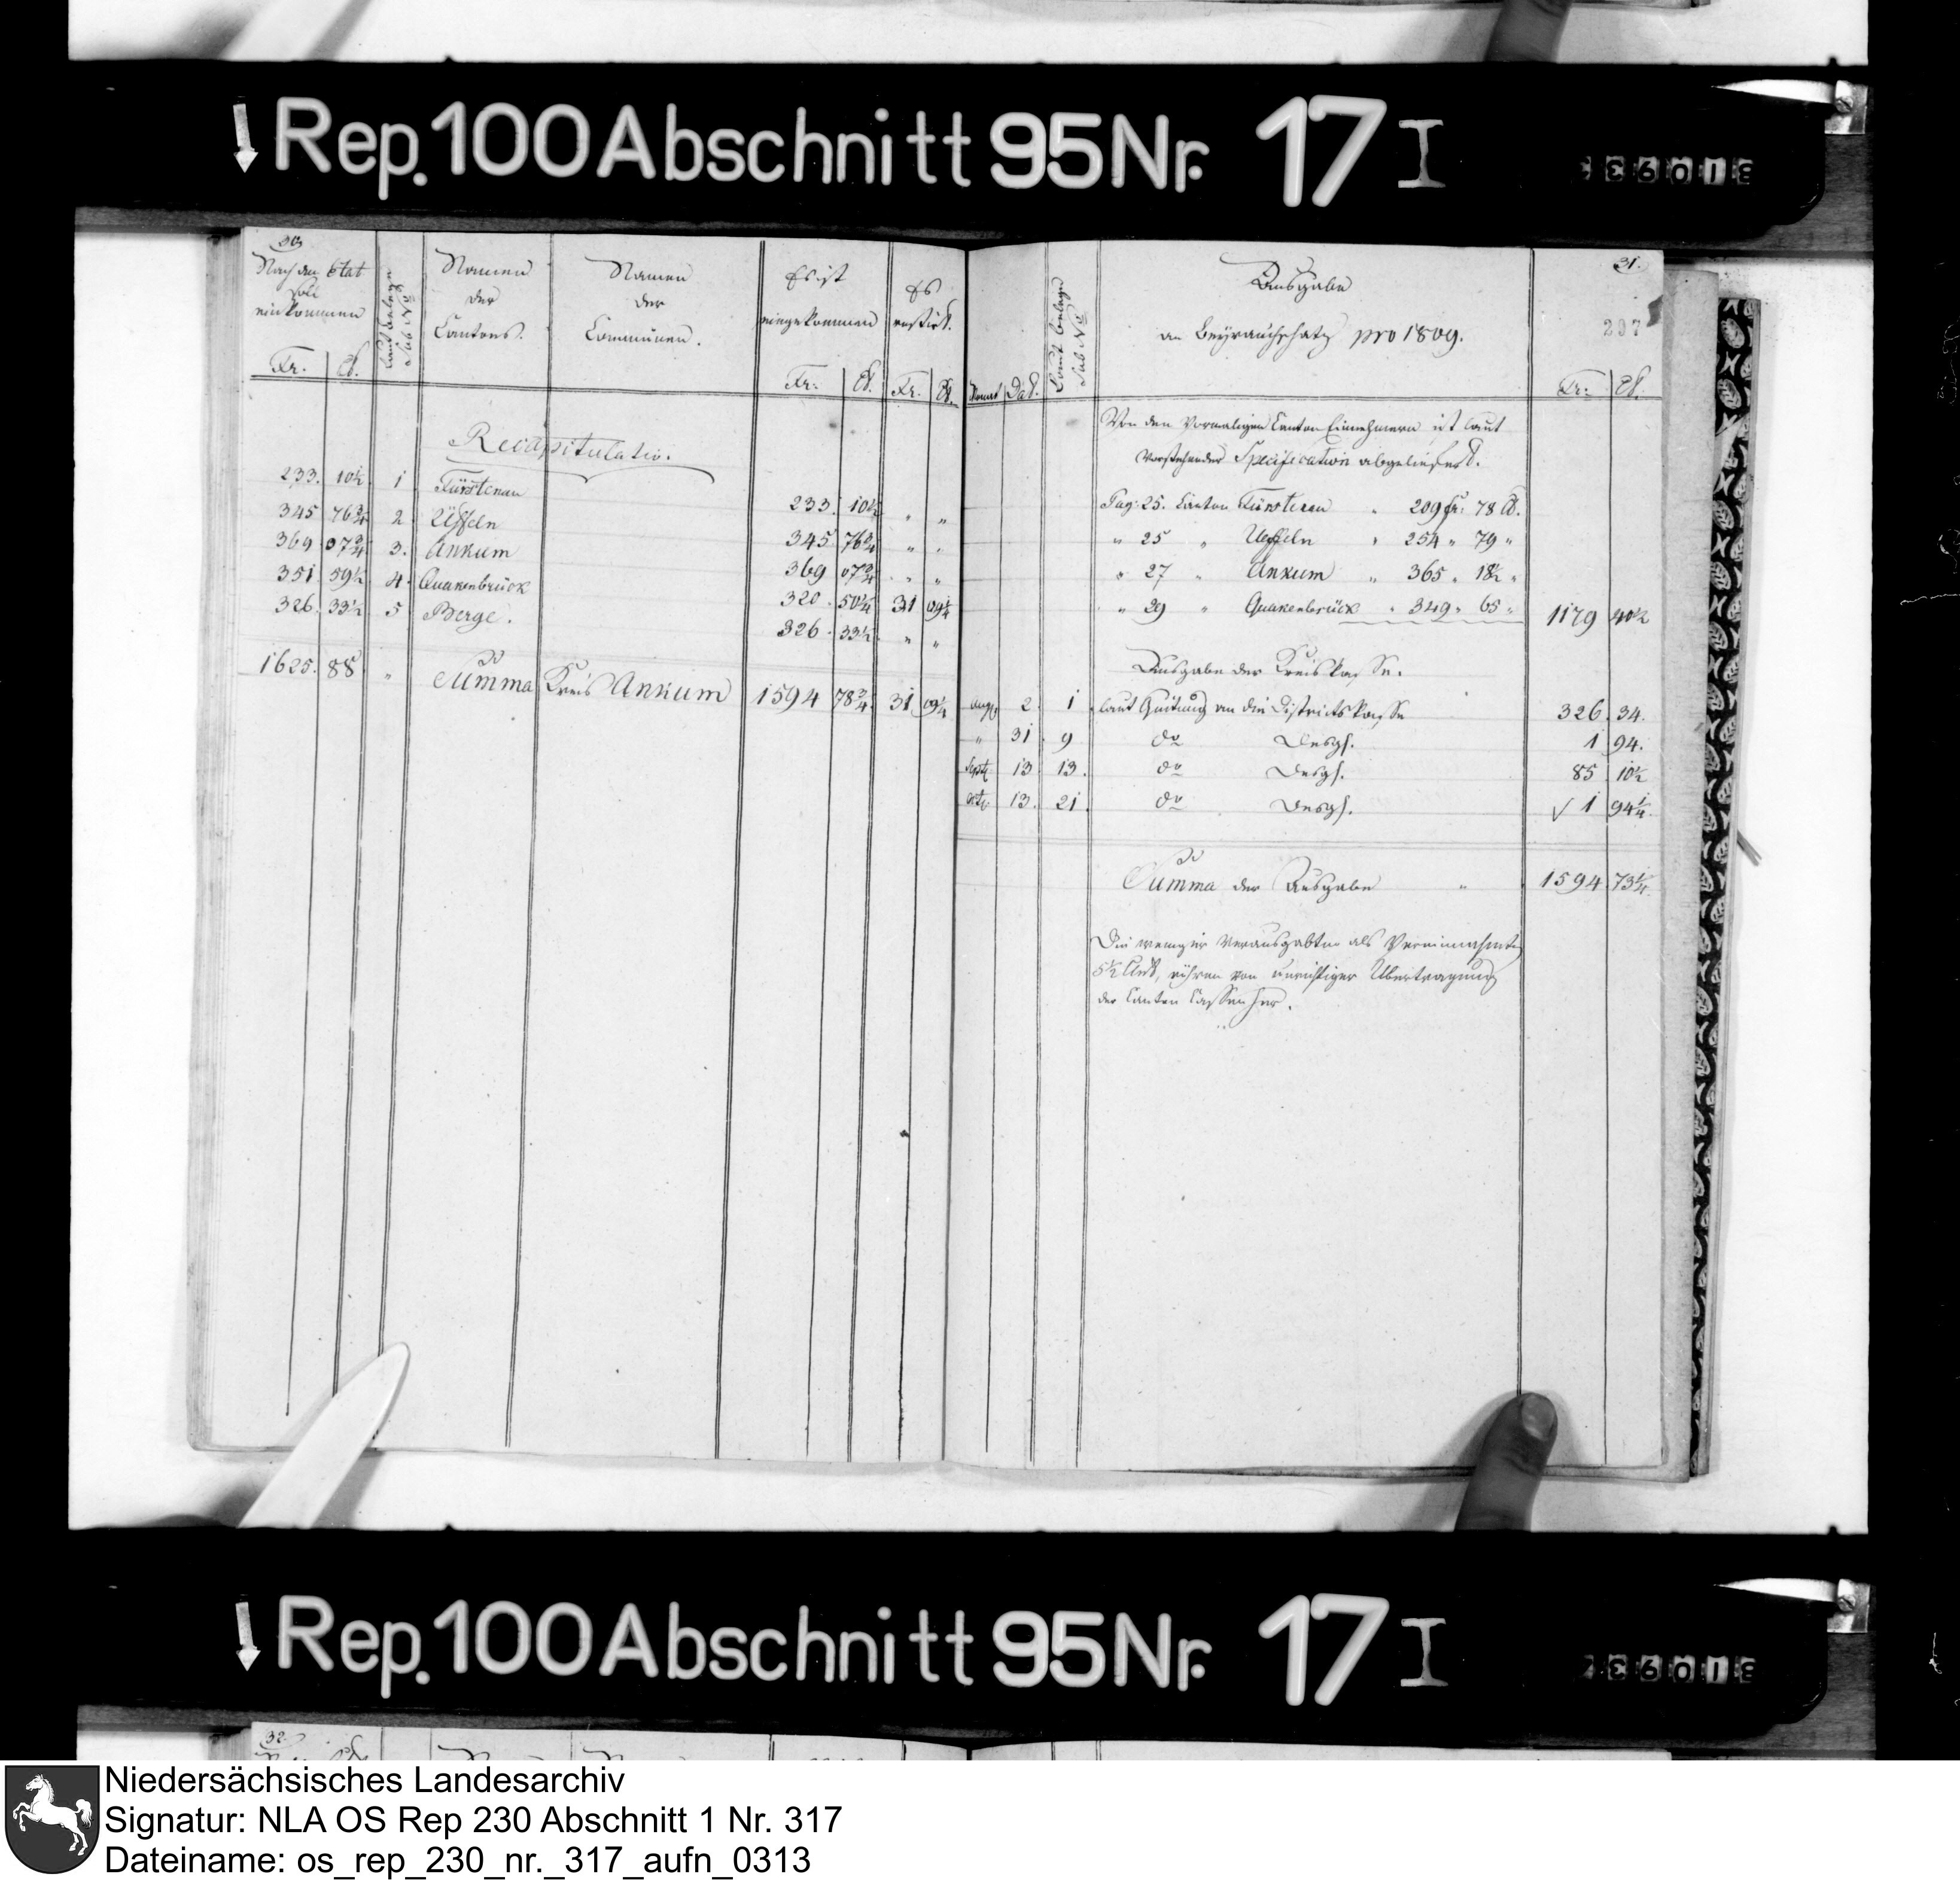 Rep. 100 Abschnitt 95 Nr. 17 I
30
Nach dem Etat soll einkommen
Fr. Ct.
Laut belege Sub No
Namen der Cantons.
Namen der Communen.
Es ist eingekommen
Fr: Ct.
Es restirt.
Fr. Ct.
Recapitulatio.
233. 10½ 1 Fürstenau 233. 10½ " "
345 76¾ 2 Ueffeln 345 76¾ " "
369 07¾ 3. Ankum 369 07¾ " "
351. 59½ 4. Quakenbrück 320. 50¼ 31 09¼
326. 33½ 5 Berge. 326. 33½ " "
1625. 88 " Summa Kreis Ankum 1594 78¾ 31 09¼
31.
207
Monat Dat.
Laut belege Sub No
Ausgabe
an Beyrauchschatz pro 1809.
Fr: Ct.
Von den Vormaligen Canton Einnehmern ist laut
Vorstehender Specification abgeliefert.
Pag: 25. Canton Fürstenau " 209 fr: 78 Ct.
" 25 " Ueffeln " 254 " 79 "
" 27 " Ankum " 365 " 18½ "
" 29 " Quakenbrück " 349 " 65 " 1179 40½
Ausgabe der Kreiskasse.
Augst 2 1 laut Quitung an die Districtskasse 326. 34.
" 31. 9 do Desgl. 1 94.
Septb 13. 13. do Desgl. 85 10½
Octb 13. 21. do Desgl. √ 1 94¼
Summa der Ausgabe " 1594 73¼
Die weniger Verausgabten als Vereinnahmten
5½ Cent, rühren von unrichtiger Übertragung
der Canton Cassen her.
Rep. 100 Abschnitt 95 Nr. 17 I
32
Niedersächsisches Landesarchiv
Signatur: NLA OS Rep 230 Abschnitt 1 Nr. 317
Dateiname: os_rep_230_nr._317_aufn_0313